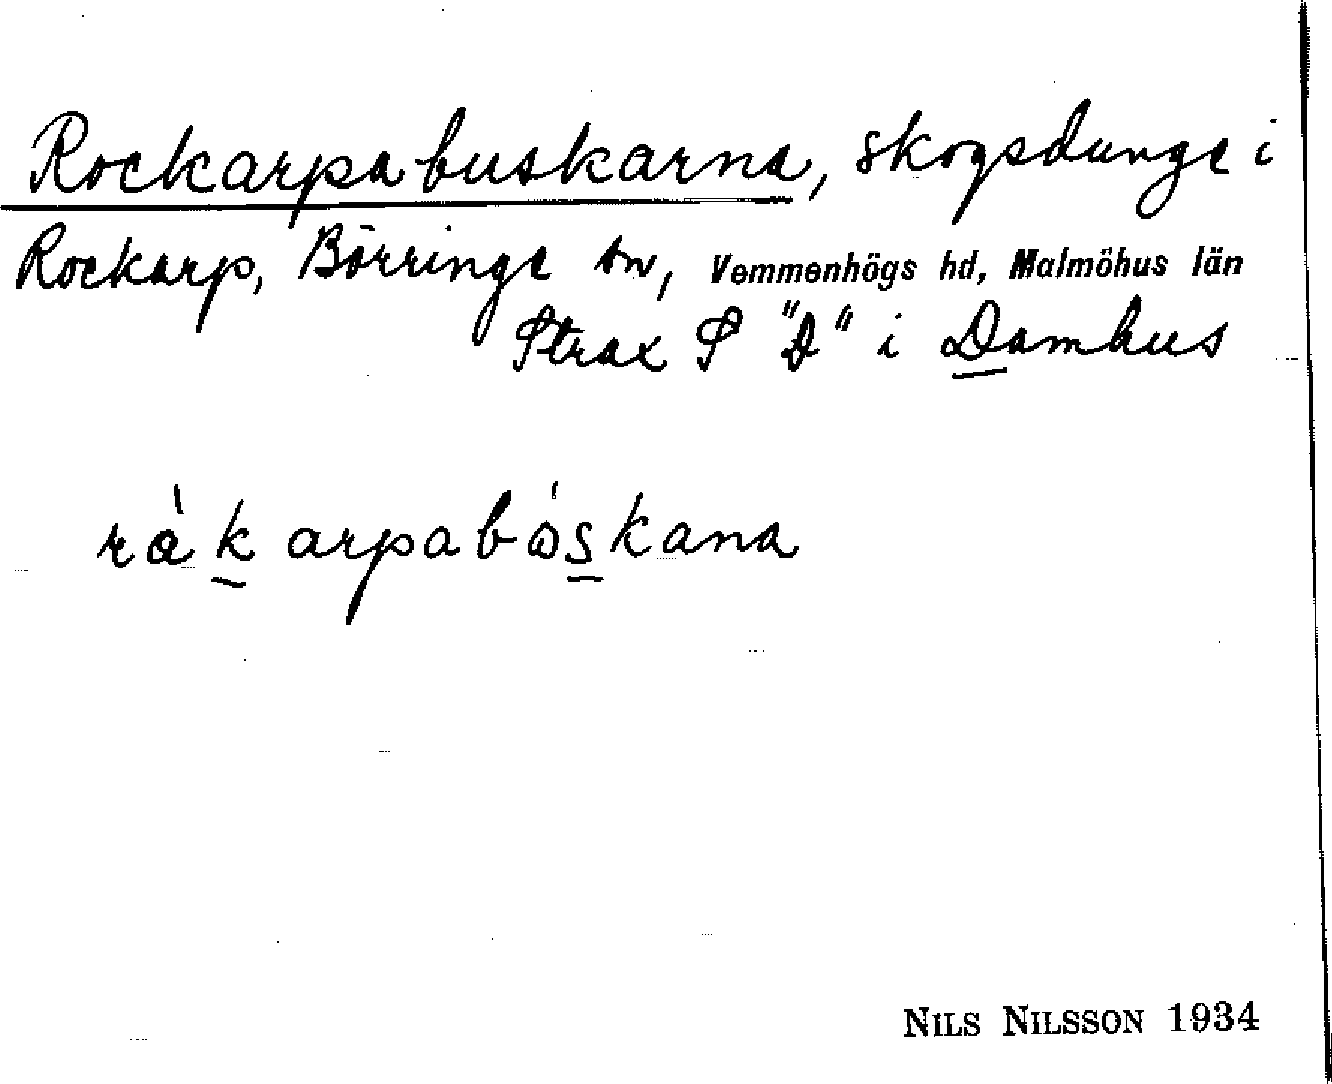 Rockarpabuskarna, skogsdunge i
Rockarp, Börringe sn, Vemmenhögs hd, Malmöhus län
Strax S "D" i Damhus
råkarpabóskana
NILS NILSSON 1934